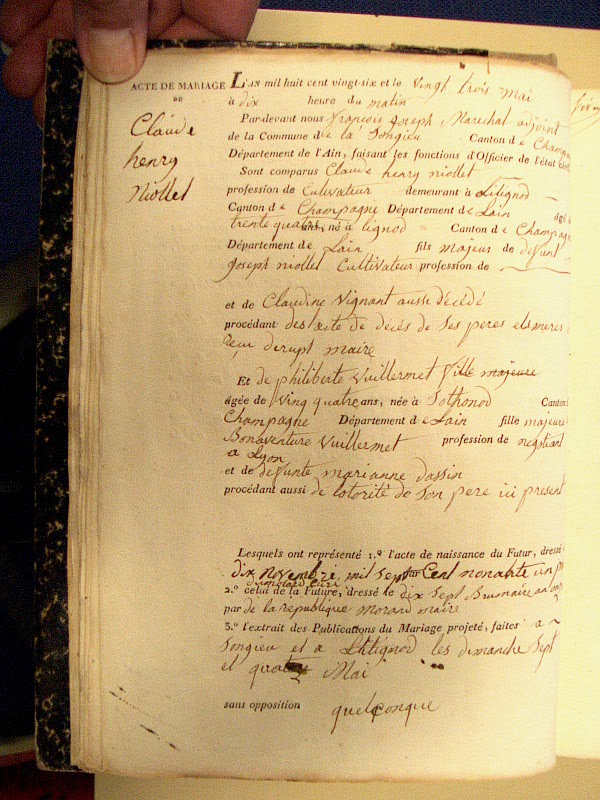 ACTE DE MARIAGE
DE
Claude
henry
Niollet
L'AN mil huit cent vingt-six et le vingt trois mai
à dix heure du matin
Par-devant nous françois Joseph Marechal adjoint
de la Commune de la Songieu Canton de Champagne
Département de l'Ain, faisant les fonctions d'Officier de l'état
Sont comparus Claude henry niollet
profession de Cultivateur demeurant à Litignod
Canton de Champagne Département de Lain âgé
trente quatre ans, né à lignod Canton de Champagne
Département de Lain fils majeur de defunt
Joseph niollet Cultivateur profession de
et de Claudine Vignant aussi décédé
procédant des acte de décés de ses peres els meres
reçu derupt maire
Et de philiberte Vuillermet fille majeure
âgée de Vingt quatre ans, née à Sothonod Canton
Champagne Département de Lain fille majeure
Bonaventure Vuillermet profession de negotiant
a Lyon
et de defunte marianne dassin
procédant aussi de lotorité de son pere ici present
Lesquels ont représenté 1.º l'acte de naissance du Futur, dressé
dix Novembre mil sept Cent nonante un
2.º celui de la Future, dressé le dix Sept Brumaire an
par de la republique morand maire
3.º l'extrait des Publications du Mariage projeté, faites a
Songieu et a Lhtignod les dimanche Sept
et quatorze Mai
sans opposition quelconque